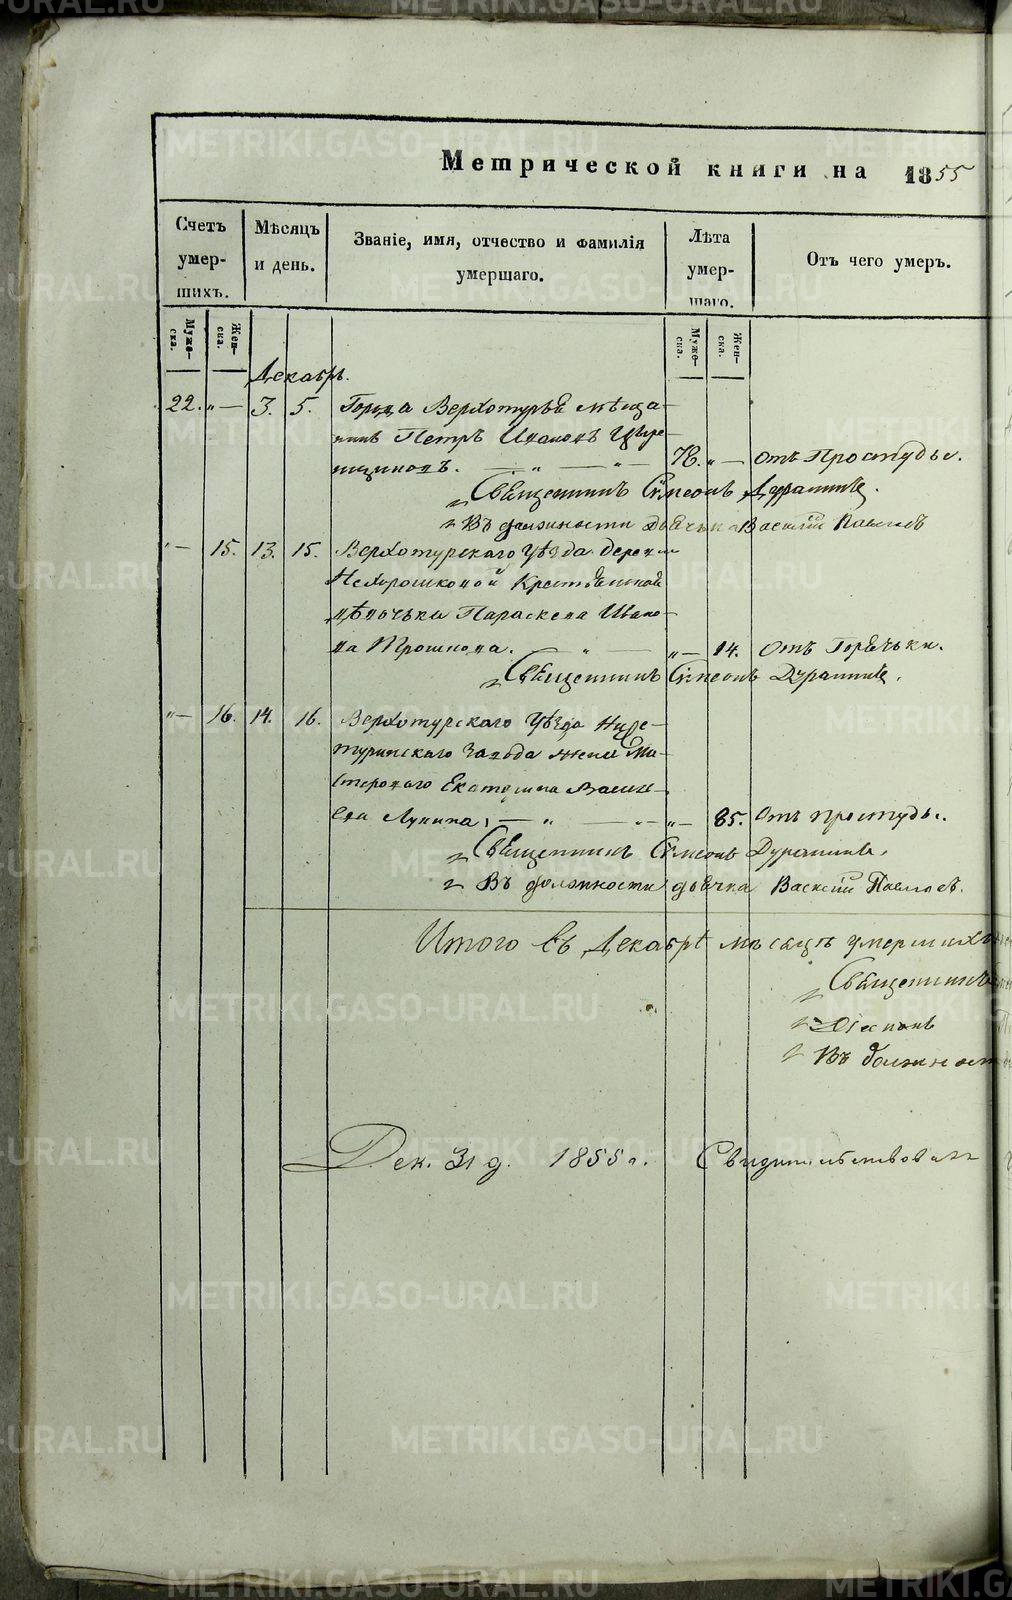 Метрической книги на 1855
Счетъ умершихъ.
Мѣсяцъ и день.
Званіе, имя, отчество и фамилія умершаго.
Лѣта умершаго.
Отъ чего умеръ.
Мужеска.
Женска.
Мужеска.
Женска.
Декабрь.
22. „ — 3. 5. Города Верхотурья мѣща-
нинъ Петръ Ивановъ
щиковъ. — „ — „ — „ — отъ Простуды.
Священникъ Симеонъ
Въ должности Дьячька Василій Павловъ
„ — 15. 13. 15. Верхотурскаго Уѣзда деревни
Нехорошковой Крестьянская
дѣвочька Параскева Ивано-
ва Трошкова. „ — 14. Отъ Горячьки.
Священникъ Симеонъ
„ — 16. 14. 16. Верхотурскаго Уѣзда Ниже-
туринскаго Завода жена Ма-
стероваго Екатерина Василь-
ева Лунина, — „ — „ — „ — 85. Отъ простуды.
Священникъ Симеонъ
Въ должности дьячка Василій Павловъ.
Итого въ Декабрѣ мѣсяцѣ умершихъ
Священникъ
Діаконъ
Въ должност
Дек. 31 д. 1855 г. Свидѣтельствовалъ
METRIKI.GASO-URAL.RU